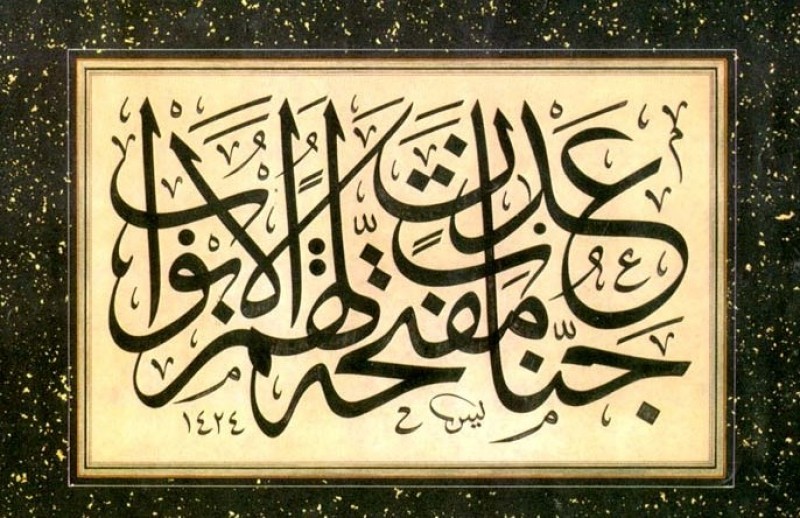 جَنَّاتِ عَدْنٍ مُفَتَّحَةً لَهُمُ الْأَبْوَابُ
١٤٢٤